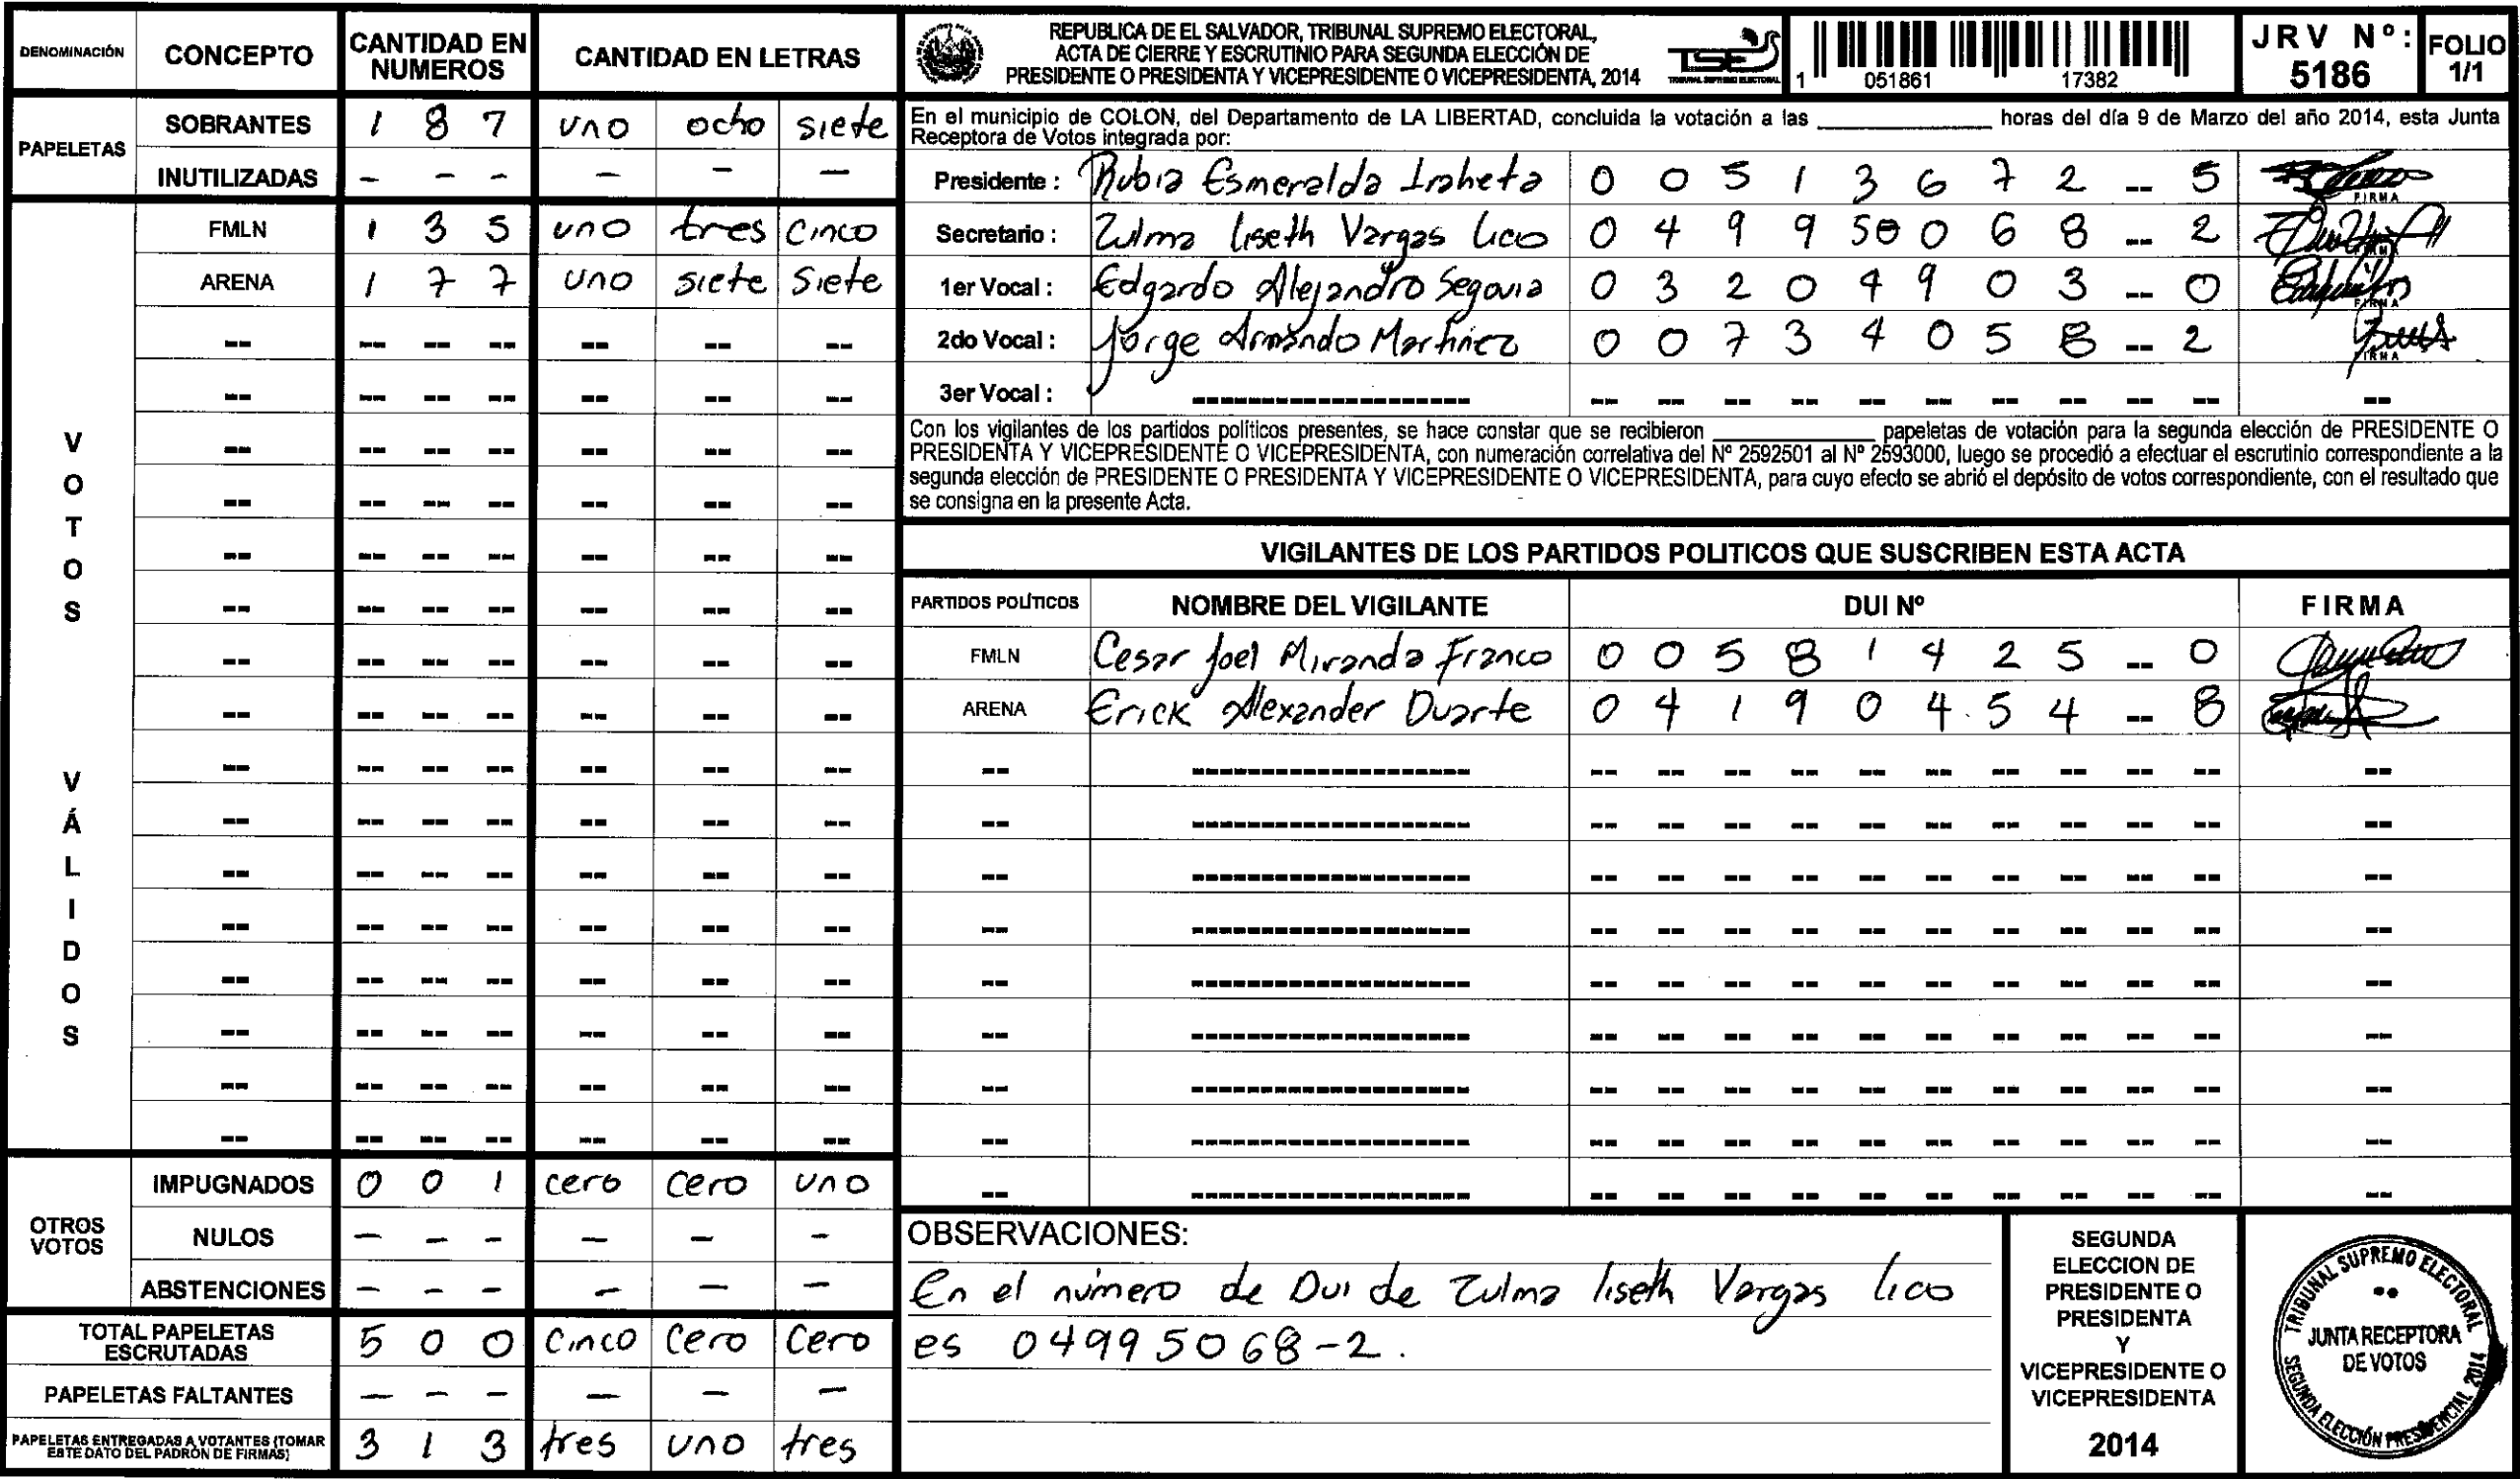 DENOMINACIÓN CONCEPTO CANTIDAD EN NUMEROS CANTIDAD EN LETRAS
PAPELETAS
SOBRANTES 1 8 7 uno ocho siete
INUTILIZADAS - - - - - -
VOTOS VÁLIDOS
FMLN 1 3 5 uno tres cinco
ARENA 1 7 7 uno siete siete
OTROS VOTOS
IMPUGNADOS 0 0 1 cero cero uno
NULOS - - - - - -
ABSTENCIONES - - - - - -
TOTAL PAPELETAS ESCRUTADAS 5 0 0 cinco cero cero
PAPELETAS FALTANTES - - - - - -
PAPELETAS ENTREGADAS A VOTANTES (TOMAR ESTE DATO DEL PADRÓN DE FIRMAS) 3 1 3 tres uno tres
REPUBLICA DE EL SALVADOR, TRIBUNAL SUPREMO ELECTORAL,
ACTA DE CIERRE Y ESCRUTINIO PARA SEGUNDA ELECCIÓN DE
PRESIDENTE O PRESIDENTA Y VICEPRESIDENTE O VICEPRESIDENTA, 2014
TSE
TRIBUNAL SUPREMO ELECTORAL
1 051861 17382
JRV Nº: 5186
FOLIO 1/1
En el municipio de COLON, del Departamento de LA LIBERTAD, concluida la votación a las ____________ horas del día 9 de Marzo del año 2014, esta Junta
Receptora de Votos integrada por:
Presidente : Rubia Esmeralda Iraheta 0 0 5 1 3 6 7 2 -- 5 FIRMA
Secretario : Zulma liseth Vargas lico 0 4 9 9 50 0 6 8 -- 2
1er Vocal : Edgardo Alejandro Segovia 0 3 2 0 4 9 0 3 -- 0 FIRMA
2do Vocal : Jorge Armando Martinez 0 0 7 3 4 0 5 8 -- 2 FIRMA
3er Vocal :
Con los vigilantes de los partidos políticos presentes, se hace constar que se recibieron ____________ papeletas de votación para la segunda elección de PRESIDENTE O
PRESIDENTA Y VICEPRESIDENTE O VICEPRESIDENTA, con numeración correlativa del Nº 2592501 al Nº 2593000, luego se procedió a efectuar el escrutinio correspondiente a la
segunda elección de PRESIDENTE O PRESIDENTA Y VICEPRESIDENTE O VICEPRESIDENTA, para cuyo efecto se abrió el depósito de votos correspondiente, con el resultado que
se consigna en la presente Acta.
VIGILANTES DE LOS PARTIDOS POLITICOS QUE SUSCRIBEN ESTA ACTA
PARTIDOS POLÍTICOS NOMBRE DEL VIGILANTE DUI Nº FIRMA
FMLN Cesar Joel Miranda Franco 0 0 5 8 1 4 2 5 -- 0
ARENA Erick Alexander Duarte 0 4 1 9 0 4 5 4 -- 8
OBSERVACIONES:
En el número de Dui de Zulma liseth Vargas lico
es 04995068-2.
SEGUNDA
ELECCION DE
PRESIDENTE O
PRESIDENTA
Y
VICEPRESIDENTE O
VICEPRESIDENTA
2014
TRIBUNAL SUPREMO ELECTORAL
JUNTA RECEPTORA
DE VOTOS
SEGUNDA ELECCIÓN PRESIDENCIAL 2014